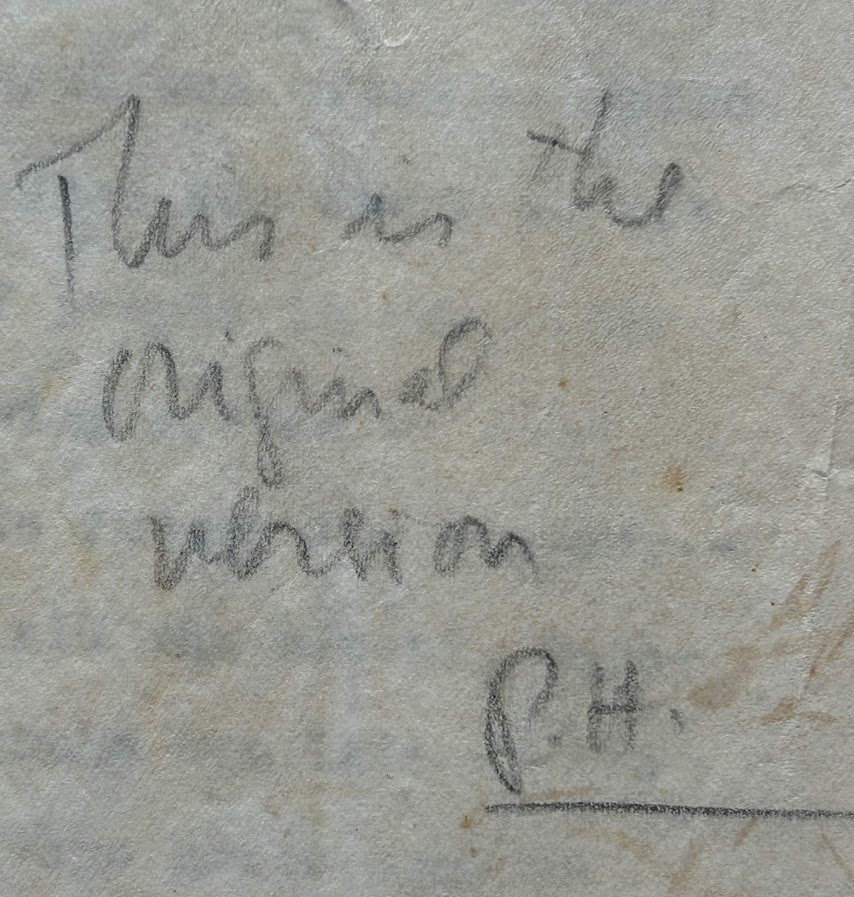 This is the
original
version
P.H.